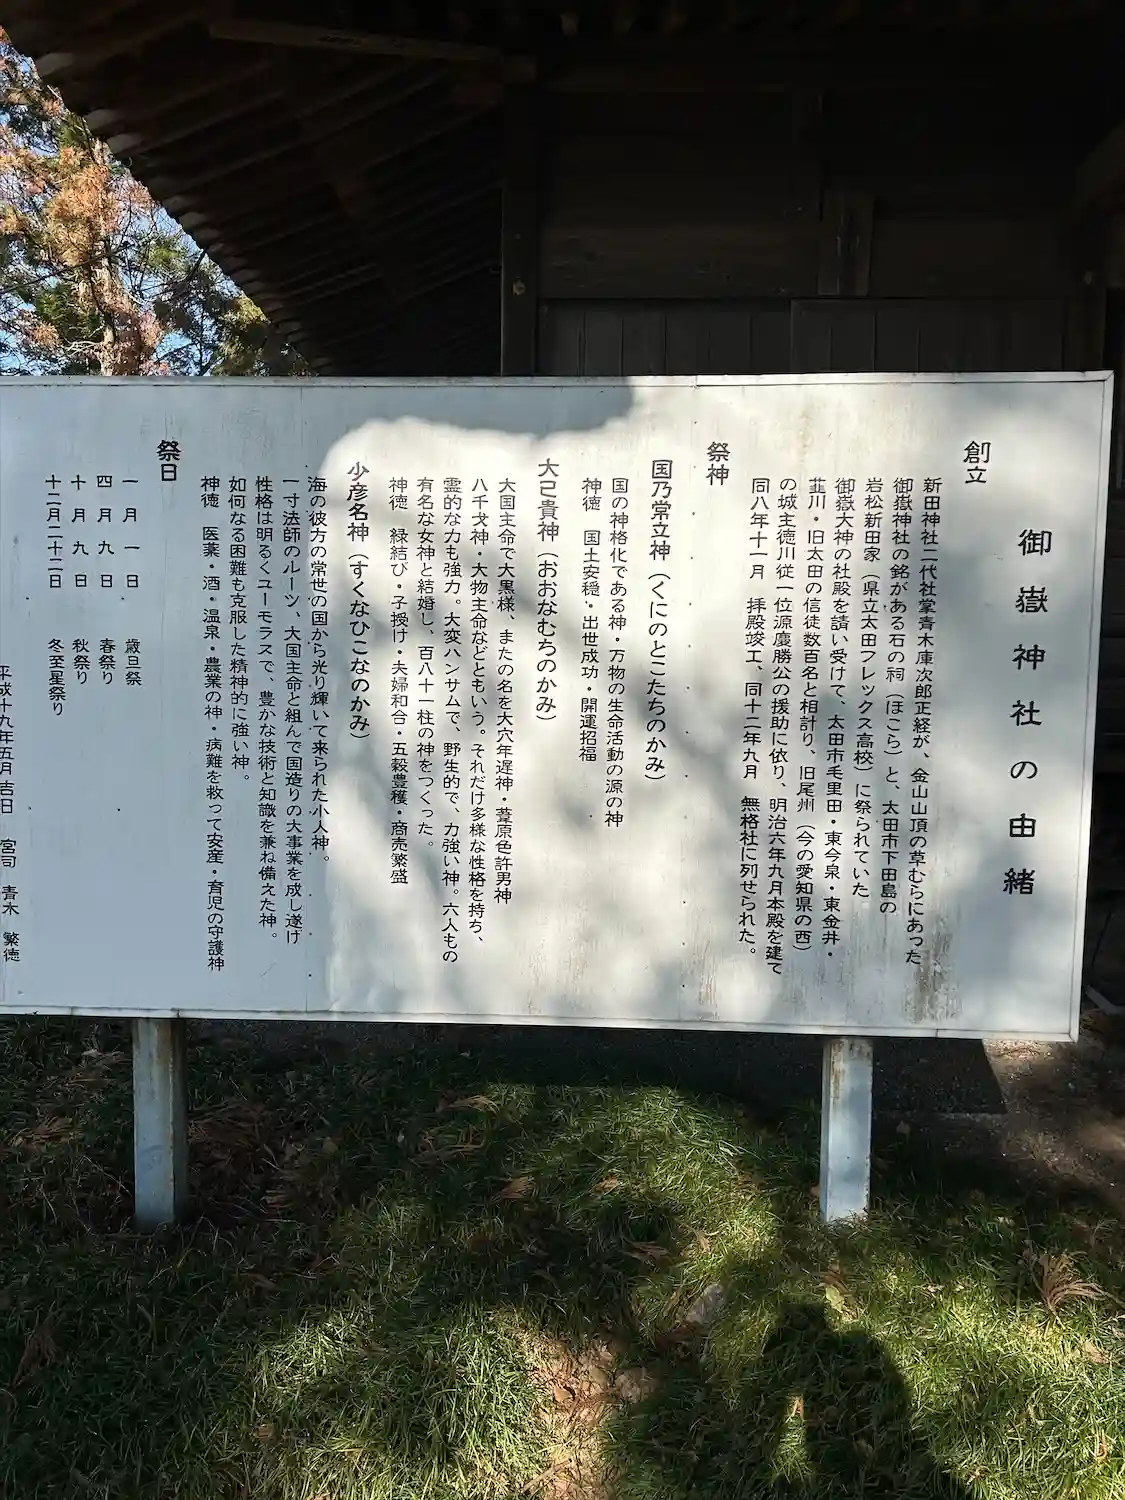 御嶽神社の由緒
創立
新田神社二代社掌青木庫次郎正経が、金山山頂の草むらにあった
御嶽神社の銘がある石の祠（ほこら）と、太田市下田島の
岩松新田家（県立太田フレックス高校）に祭られていた
御嶽大神の社殿を請い受けて、太田市毛里田・東今泉・東金井・
韮川・旧太田の信徒数百名と相計り、旧尾州（今の愛知県の西）
の城主徳川従一位源慶勝公の援助に依り、明治六年九月本殿を建て
同八年十一月　拝殿竣工、同十二年九月　無格社に列せられた。
祭神
国乃常立神（くにのとこたちのかみ）
国の神格化である神・万物の生命活動の源の神
神徳　国土安穏・出世成功・開運招福
大己貴神（おおなむちのかみ）
大国主命で大黒様、またの名を大穴年遅神・葦原色許男神
八千戈神・大物主命などともいう。それだけ多様な性格を持ち、
霊的な力も強力。大変ハンサムで、野生的で、力強い神。六人もの
有名な女神と結婚し、百八十一柱の神をつくった。
神徳　縁結び・子授け・夫婦和合・五穀豊穣・商売繁盛
少彦名神（すくなひこなのかみ）
海の彼方の常世の国から光り輝いて来られた小人神。
一寸法師のルーツ、大国主命と組んで国造りの大事業を成し遂げ
性格は明るくユーモラスで、豊かな技術と知識を兼ね備えた神。
如何なる困難も克服した精神的に強い神。
神徳　医薬・酒・温泉・農業の神・病難を救って安産・育児の守護神
祭日
一月　一日　歳旦祭
四月　九日　春祭り
十月　九日　秋祭り
十二月二十二日　冬至星祭り
平成十九年五月吉日　宮司　青木　繁徳